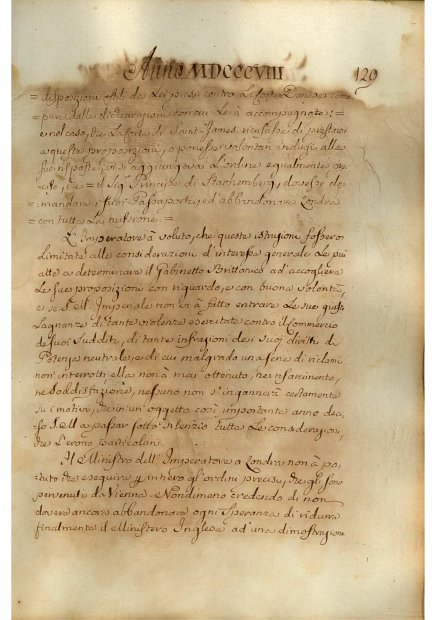 Anno MDCCCVIII
129
= disposizioni ostili da Lei prese contro Le Coste Danese come
pure dalle dichiarazioni con cui Le à accompagnate: =
= e nel caso, che La Corte di Saint-James ricusasse di prestarsi
a queste proposizioni, o ponesse volontari indugi alla
sua risposta, vi si aggiungeva L'ordine egualmente
che = il Sig. Principe di Starhemberg, dovesse do=
=mandare i suoi Passaporti, ed abbandonare Londra
= con tutta La missione. =
L'Imperatore à voluto, che queste istruzioni fossero
Limitate alle considerazioni d'interesse generale Le più
atte a determinare il Gabinetto Brittanico ad accogliere
Le sue proposizioni con riguardo, e con buona volontà,
e se S. M. Imperiale non vi à fatto entrare Le sue giuste
Lagnanze di tante violenze esercitate contro il Commercio
de suoi Sudditi, di tante infrazioni dei suoi diritti di
Potenza neutrale, e di cui malgrado una serie di richiami
non' interrotti ella non'à mai ottenuto, ne risarcimento,
ne Soddisfazione, nessuno non s'ingannerà certamente
su i motivi, che in un' oggetto così importante anno deci=
=so S. M. a passar sotto Silenzio tutte Le considerazioni,
che L'erano particolari.
Il Ministro dell'Imperatore a Londra non à po=
tuto che eseguire intiero gl'ordini precisi, che gli sono
pervenuti da Vienna. Nondimeno credendo di non
dovere ancora abbandonare ogni Speranza di ridurre
finalmente il Ministero Inglese ad una dimostrazione